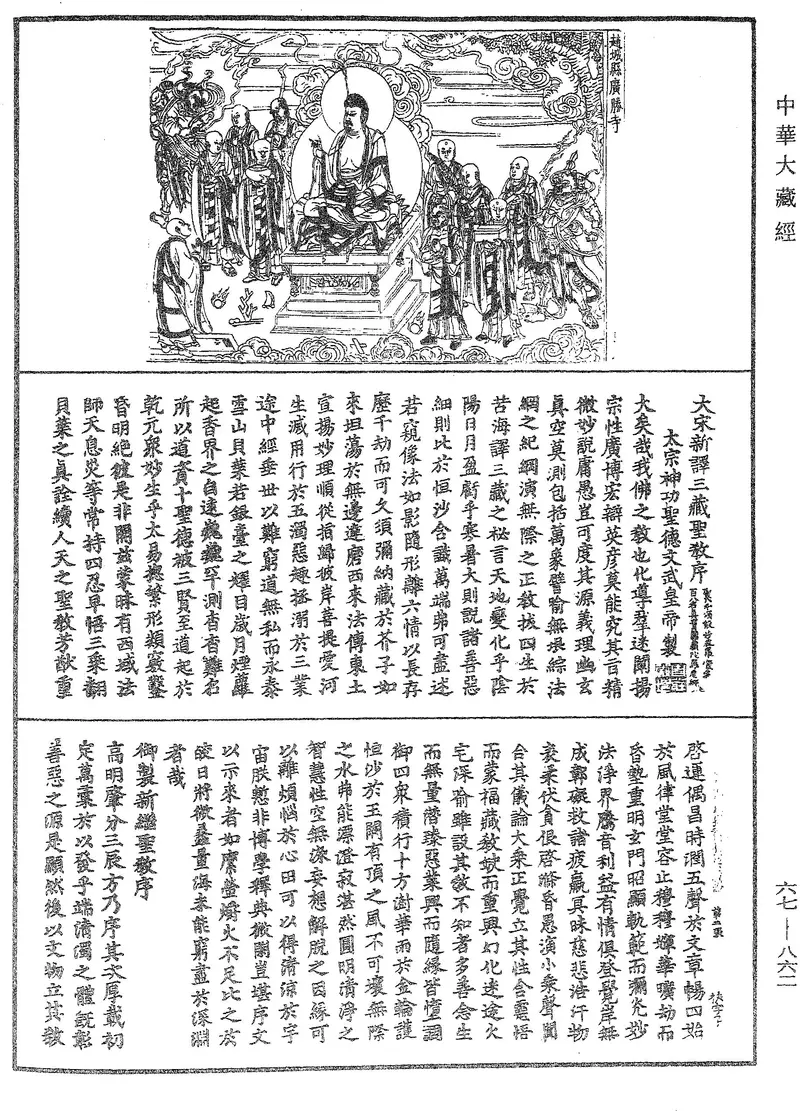 中華大藏經
六七—八六二
趙城縣廣勝寺
大宋新譯三藏聖教序
太宗神功聖德文武皇帝製
大矣哉我佛之教也化導羣迷闡揚
宗性廣博宏辯英彥莫能究其旨精
微妙說庸愚豈可度其源義理幽玄
真空莫測包括萬象譬喻無垠綜法
綱之紀綱演無際之正教拔四生於
苦海譯三藏之秘言天地變化乎陰
陽日月盈虧乎寒暑大則說諸善惡
細則比於恒沙含識萬端弗可盡述
若窺像法如影隨形離六情以長存
歷千劫而可久須彌納藏於芥子如
來坦蕩於無邊達磨西來法傳東土
宣揚妙理順從指歸彼岸菩提愛河
生滅用行於五濁惡趣拯溺於三業
途中經垂世以難窮道無私而永泰
雪山貝葉若銀臺之耀目歲月煙蘿
起香界之自遠巍巍罕測杳杳難名
所以道資十聖德被三賢至道起於
乾元衆妙生乎太易揔繁形類竅鑿
昏明絶彼是非開茲蒙昧有西域法
師天息災等常持四忍早悟三乘翻
貝葉之真詮續人天之聖教芳猷重
啓運偶昌時潤五聲於文章暢四始
於風律堂堂容止穆穆嬋華曠劫而
昏墊重明玄門昭顯軌範而彌光妙
法淨界騰音利益有情俱登覺岸無
成鄣礙救諸疲羸具昧慈悲浩汗物
表柔伏貪佷啓滌昏愚演小乘聲聞
合其儀論大乘正覺立其性含靈悟
而蒙福藏教缺而重興幻化迷途火
宅深喻雖設其教不知者多善念生
而無量潛臻惡業興而隨緣皆墮調
御四衆積行十方澍華雨於金輪護
恒沙於玉闕有頂之風不可壞無際
之水弗能漂澄寂湛然圓明清淨之
智慧性空無染妄想解脫之因緣可
以離煩惱於心田可以得清涼於宇
宙朕慙非博學釋典微閑豈堪序文
以示來者如縻螢爝火不足比之於
皎日將微蠡量海未能窮盡於深淵
者哉
御製新繼聖教序
高明肇分三辰方乃序其次厚載初
定萬彙於以發乎端清濁之體旣彰
善惡之源是顯然後以文物立其教